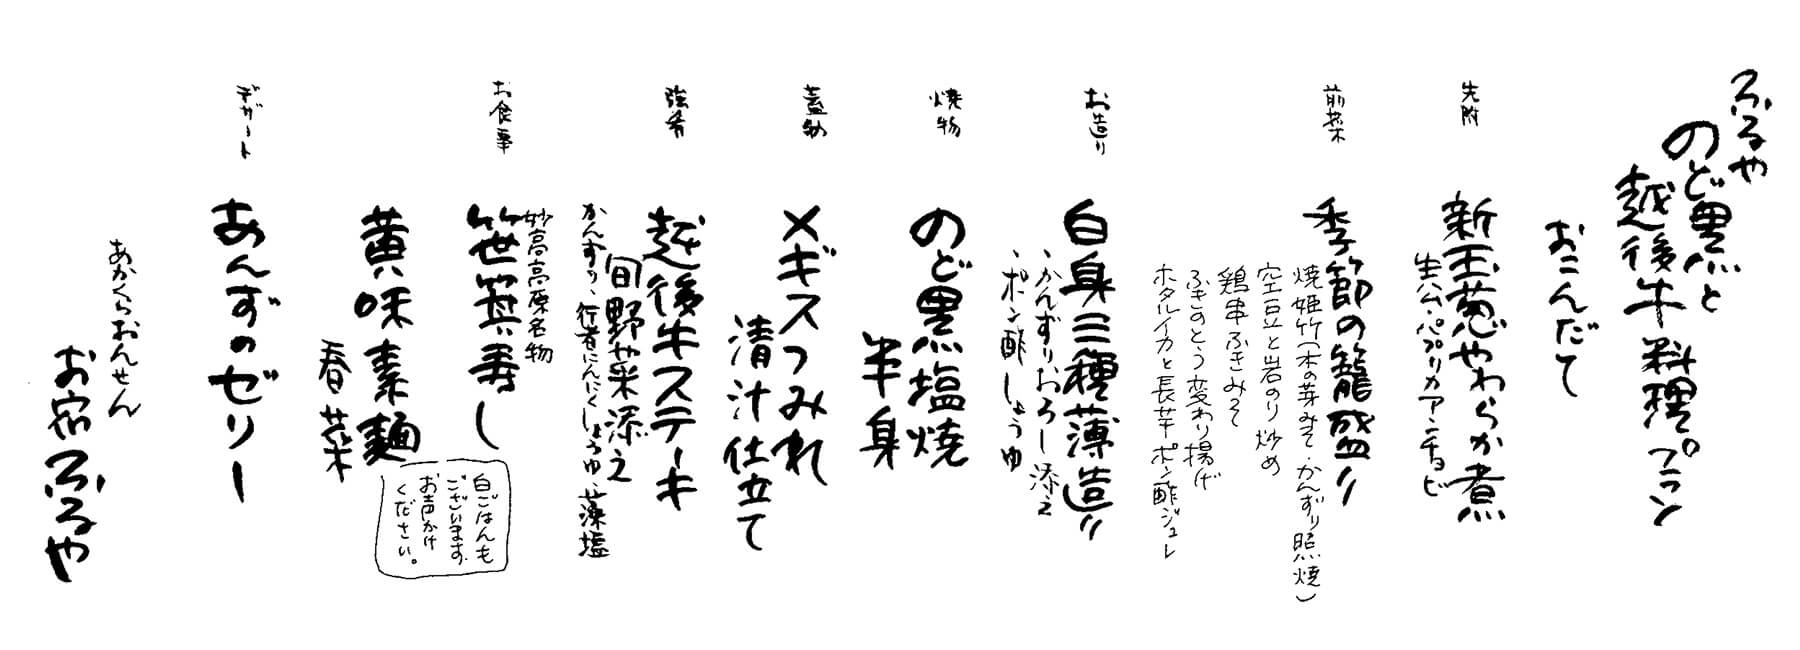 ふるや
のど黒と
越後牛料理プラン
おこんだて
先附
新玉葱やわらか煮
生ハム・パプリカアンチョビ
前菜
季節の籠盛り
焼姫竹(木の芽みそ・かんずり照焼)
空豆と岩のり炒め
鶏串ふきみそ
ふきのとう変わり揚げ
ホタルイカと長芋ポン酢ジュレ
お造り
白身三種薄造り
・かんずりおろし添え
・ポン酢しょうゆ
焼物
のど黒塩焼
半身
蓋物
メギスつみれ
清汁仕立て
強肴
越後牛ステーキ
旬野菜添え
かんずり、行者にんにくしょうゆ、藻塩
お食事
妙高高原名物
笹寿し
黄味素麺
春菜
白ごはんも
ございます。
お声かけ
ください。
デザート
あんずのゼリー
あかくらおんせん
お宿ふるや